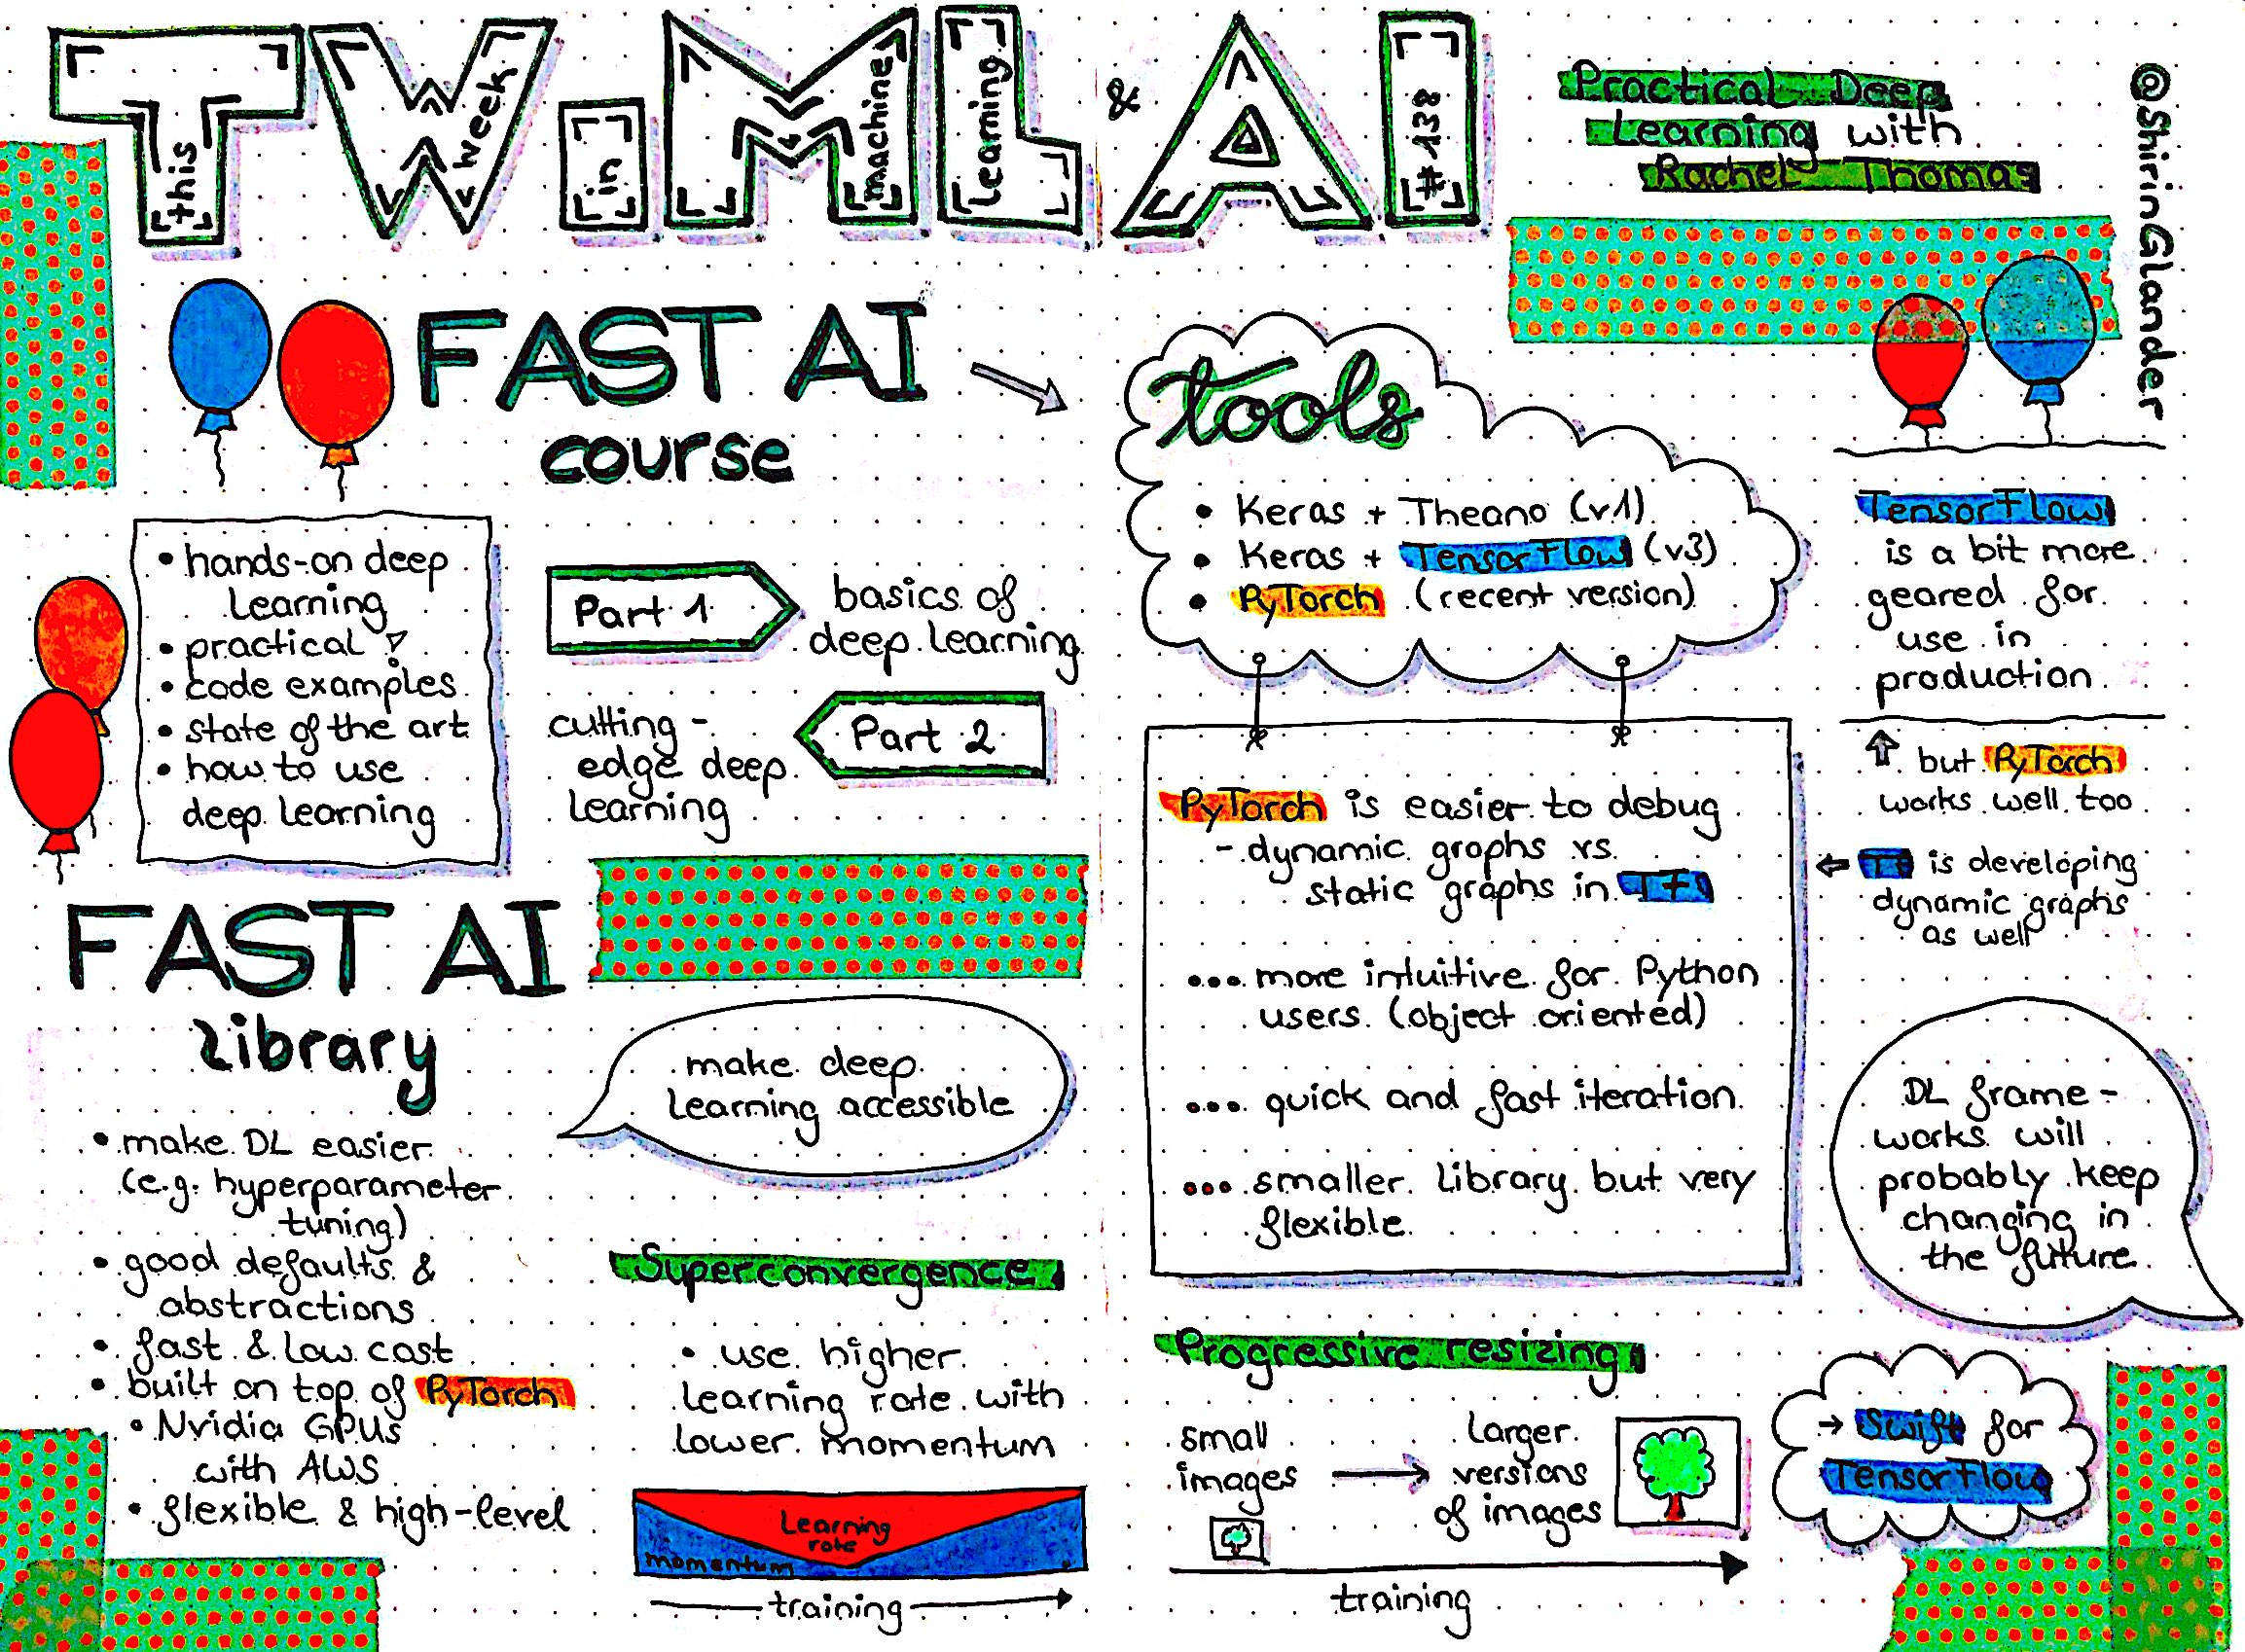 TWiML & AI
this week in machine learning #138
Practical Deep
Learning with
Rachel Thomas
@ShirinGlander
FAST AI
course
• hands-on deep
learning
• practical
• code examples
• state of the art
• how to use
deep learning
Part 1
basics of
deep learning
Part 2
cutting-
edge deep
learning
tools
• Keras + Theano (v1)
• Keras + TensorFlow (v3)
• PyTorch (recent version)
PyTorch is easier to debug
- dynamic graphs vs.
static graphs in TF
... more intuitive for Python
users (object oriented)
... quick and fast iteration
... smaller library but very
flexible
TensorFlow
is a bit more
geared for
use in
production
↑ but PyTorch
works well too
← TF is developing
dynamic graphs
as well
DL frame-
works will
probably keep
changing in
the future
→ Swift for
TensorFlow
FAST AI
library
• make DL easier
(e.g. hyperparameter
tuning)
• good defaults &
abstractions
• fast & low cost
• built on top of PyTorch
• Nvidia GPUs
with AWS
• flexible & high-level
make deep
learning accessible
Superconvergence
• use higher
learning rate with
lower momentum
Learning
rate
momentum
training
Progressive resizing
small
images
→
larger
versions
of images
training